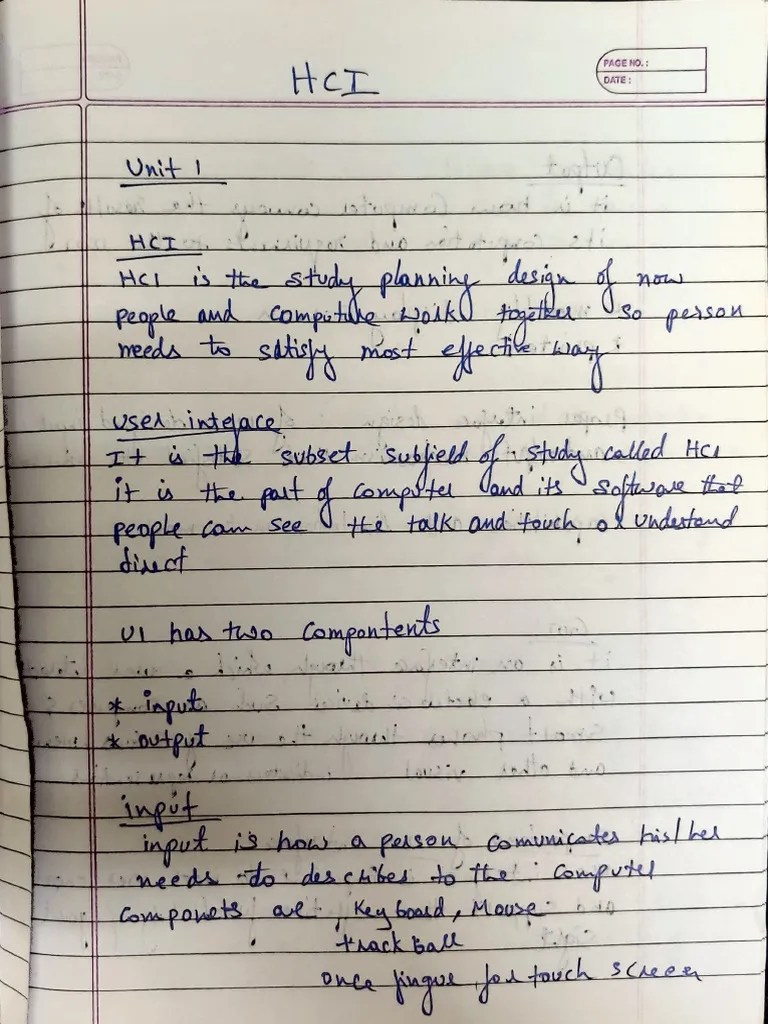 HCI
PAGE NO. :
DATE :
Unit 1
HCI
HCI is the study planning design of now
people and computure work together so person
needs to satisfy most effective way.
user inteface
It is the subset subfield of study called HCI
it is the part of computer and its software that
people can see the talk and touch or undestand
direct
UI has two Compontents
* input
* output
input
input is how a person comunicates his/her
needs to describes to the computer
componets are Key board, Mouse
track Ball
once fingue for touch screen